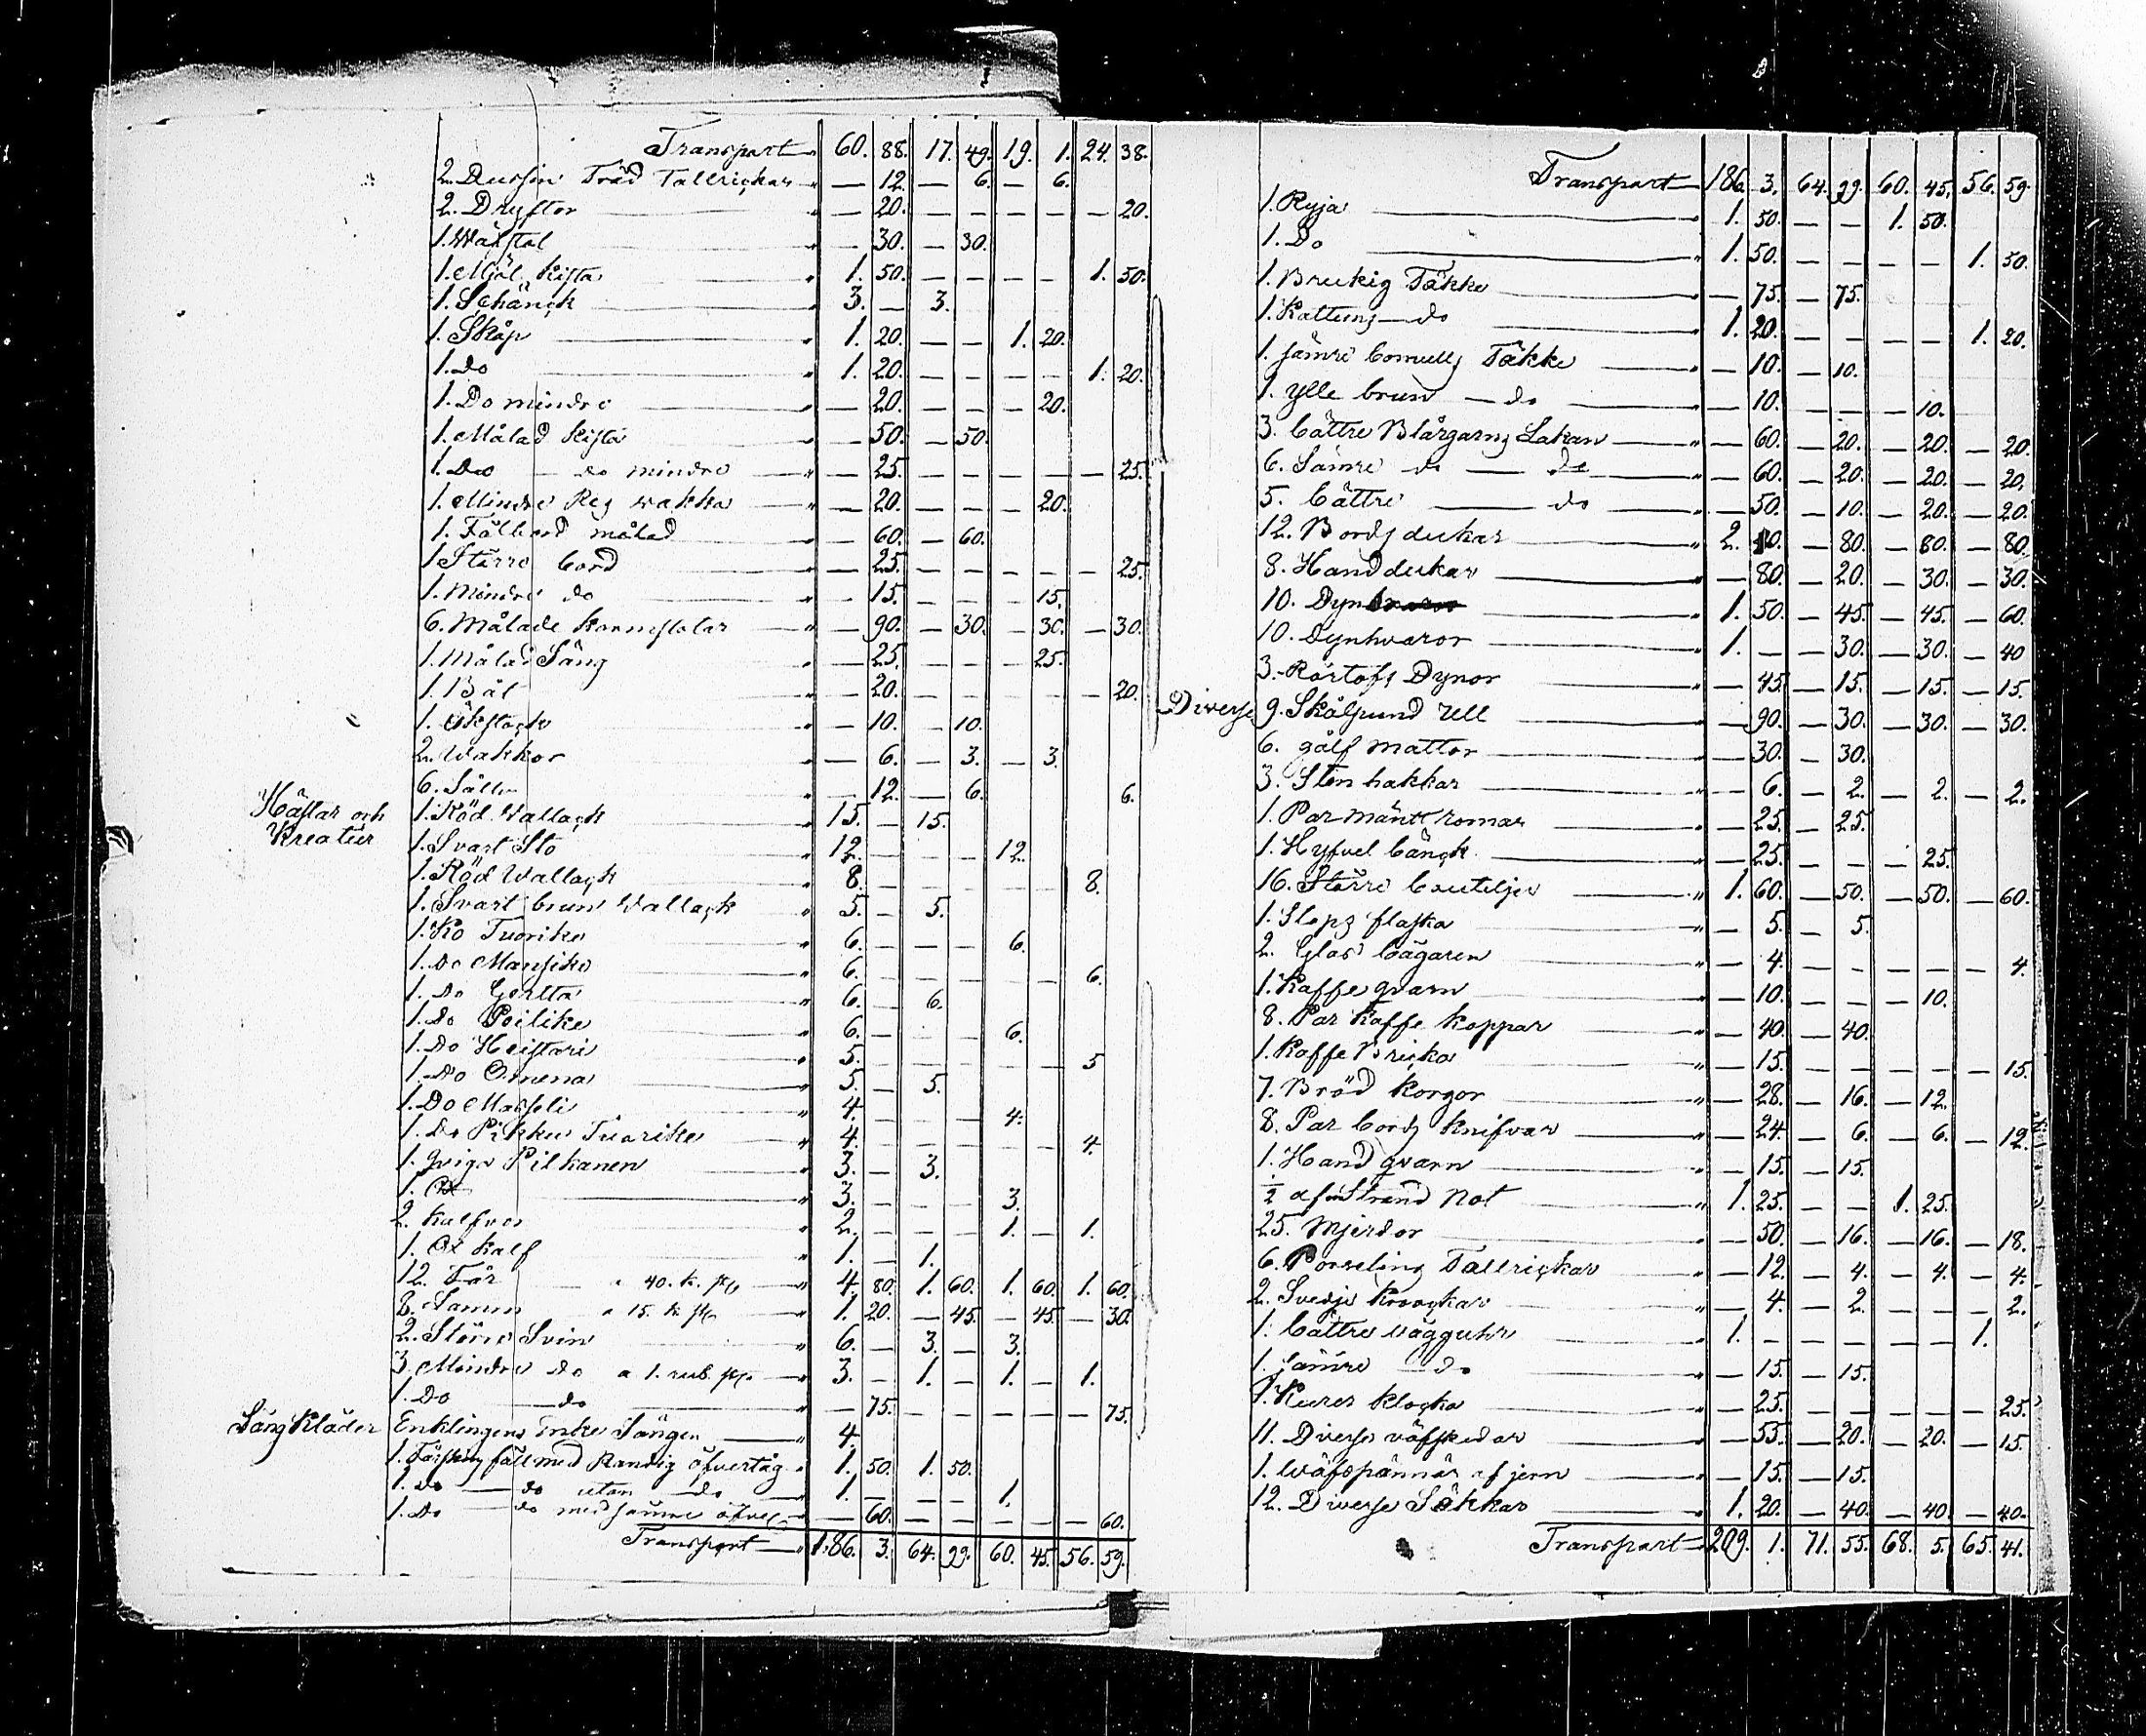 Transport 60. 88. 17. 49. 19. 1. 24. 38.
2. Dussin Träd Tallrickar — 12. — 6. — 6.
2. Dryftor — 20. — — — — — 20.
1. Wäfstol — 30. — 30.
1. Mjöl kista 1. 50. — — — — 1. 50.
1. Schänck 3. — 3.
1. Skåp 1. 20. — — 1. 20.
1. Do 1. 20. — — — — 1. 20.
1. Do mindre — 20. — — — 20.
1. Målad kista — 50. — 50.
1. Do — do mindre — 25. — — — — — 25.
1. Mindre Reg wakka — 20. — — — 20.
1. Fälbord målad — 60. — 60.
1 Större bord — 25. — — — — — 25.
1. Mindre do — 15. — — — 15.
6. Målade karmstolar — 90. — 30. — 30. — 30.
1. Målad Säng — 25. — — — 25.
1. Båt — 20. — — — — — 20.
1. Ökstock — 10. — 10.
2. Wakkor — 6. — 3. — 3.
6. Såll — 12. — 6. 6.
Hästar och Kreatur
1. Röd Wallack 15. — 15.
1. Svart Sto 12. — — — 12.
1. Röd Wallack 8. — — — — — 8.
1. Svart brun Wallack 5. — 5.
1. Ko Tuorike 6. — — — 6.
1. Do Mansike 6. — — — — — 6.
1. Do Gertta 6. — 6.
1. Do Poilike 6. — — — 6.
1. Do Heistari 5. — — — — — 5
1. Do Omena 5. — 5.
1. Do Masseli 4. — — — 4.
1. Do Pikku Tuorike 4. — — — — — 4.
1. Qviga Pilkanen 3. — 3.
1. Ox 3. — — — 3.
2. Kalfvar 2. — — — 1. — 1.
1. Ox kalf 1. — 1.
12. Får a 40. k. st 4. 80. 1. 60. 1. 60. 1. 60.
8. Lamm a 15. k st 1. 20. — 45. — 45. — 30.
2. Större Svin 6. — 3. — 3.
3. Mindre do a 1. rub. st. 3. — 1. — 1. — 1.
1. Do — do — 75. — — — — — 75.
Säng kläder
Enklingens Enke Sängen 4.
1. Fårskins fäll med Randig öfvertåg 1. 50. 1. 50.
1. Do — do utan — do 1. — — — 1.
1. Do — do med sämre öfver — 60. — — — — — 60.
Transport 186. 3. 64. 99. 60. 45. 56. 59.
Transport 186. 3. 64. 99. 60. 45. 56. 59.
1. Ryja 1. 50. — — 1. 50.
1. Do 1. 50. — — — — 1. 50.
1. Brukig Täkke — 75. — 75.
1. Kattuns — do 1. 20. — — — — 1. 20.
1. sämre bomulls Täkke — 10. — 10.
1. Ylle brun — do — 10. — — — 10.
3. bättre Blårgarns Lakan — 60. — 20. — 20. — 20.
6. Sämre do — do — 60. — 20. — 20. — 20.
5. bättre — do — 50. — 10. — 20. — 20.
12. Bords dukar 2. 40. — 80. — 80. — 80.
8. Hand dukar — 80. — 20. — 30. — 30.
10. Dynor 1. 50. — 45. — 45. — 60.
10. Dynhvaror 1. — — 30. — 30. — 40
3. Rörtofs Dynor — 45. — 15. — 15. — 15.
Diverse
9. Skålpund Ull — 90. — 30. — 30. — 30.
6. gålf mattor — 30. — 30.
3. Sten hakkar — 6. — 2. — 2. — 2.
1. Par — 25. — 25.
1. Hyfvel bänck — 25. — — — 25.
16. Större bouteljer 1. 60. — 50. — 50. — 60.
1. Stops flaska — 5. — 5.
2. Glas bägaren — 4. — — — — — 4.
1. Kaffe qvarn — 10. — — — 10.
8. Par kaffe koppar — 40. — 40.
1. Kaffe Bricka — 15. — — — — — 15.
7. Bröd korgor — 28. — 16. — 12.
8. Par bords knifvar — 24. — 6. — 6. — 12.
1. Hand qvarn — 15. — 15.
½ af en Strand Not 1. 25. — — 1. 25.
25. Mjerdor — 50. — 16. — 16. — 18.
6. Porseling Tallrickar — 12. — 4. — 4. — 4.
2. Svedje krockar — 4. — 2. — — — 2.
1. bättre vägguhr 1. — — — — — 1.
1. sämre — do — 15. — 15.
1. Kurer klocka — 25. — — — — — 25.
11. Diverse väfskedar — 55. — 20. — 20. — 15.
1. Wäfspännar af jern — 15. — 15.
12. Diverse Säkkar 1. 20. — 40. — 40. — 40.
Transport 209. 1. 71. 55. 68. 5. 65. 41.